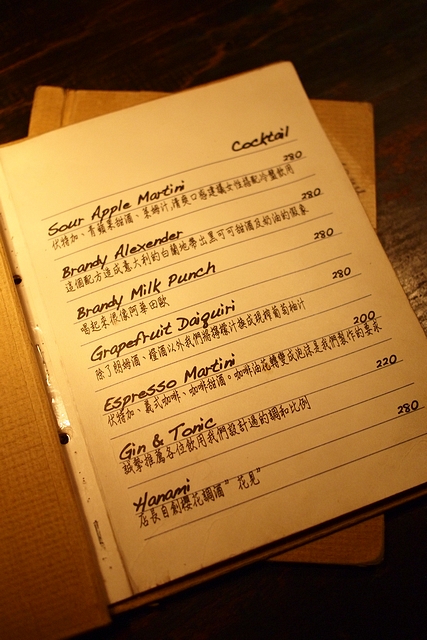 Cocktail
Sour Apple Martini 280
伏特加、青蘋果甜酒、萊姆汁,清爽口感建議女性搭配冷盤飲用
Brandy Alexender 280
這個配方造成義大利的白蘭地帶出黑可可甜酒及奶油的微象
Brandy Milk Punch 280
喝起來很像阿華田歐
Grapefruit Daiquiri 280
除了朗姆酒、橙酒以外我們將檸檬汁換成現榨葡萄柚汁
Espresso Martini 200
伏特加、義式咖啡、咖啡甜酒。咖啡油花轉變成泡沫是我們製作的要求
Gin & Tonic 220
誠摯推薦各位飲用我們設計過的調和比例
Hanami 280
店長自創櫻花調酒"花見"